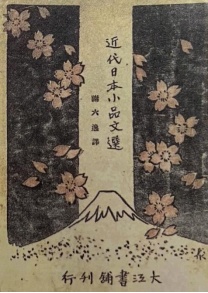 近代日本小品文選
謝六逸譯
大江書舖刊行